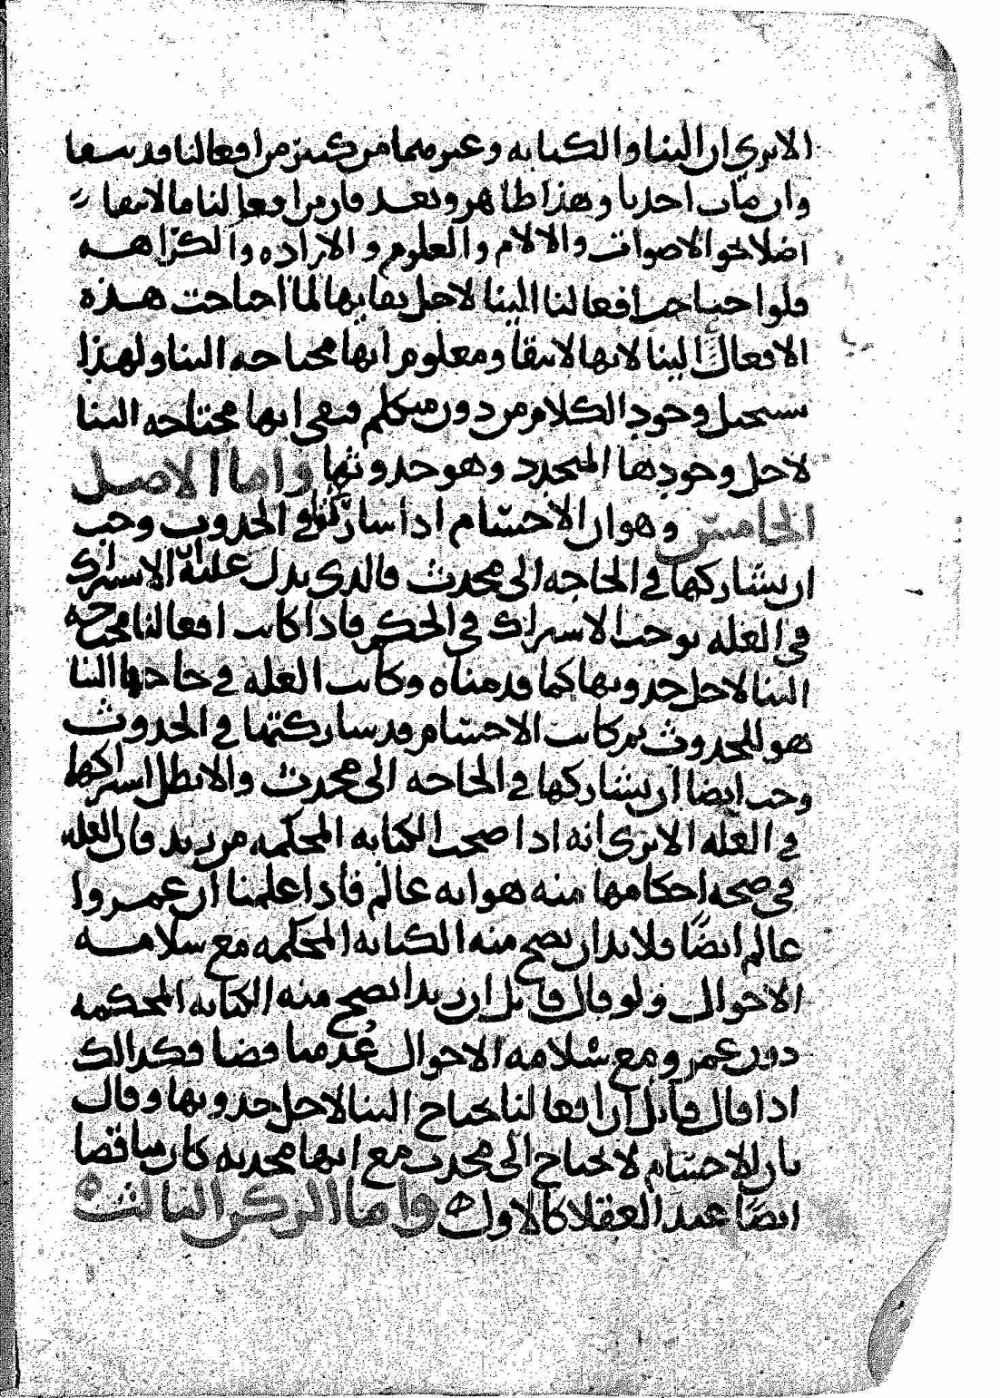 الا ترى ان البنا والكتابه وغيرهما من كثير من افعالنا قد يبقا
وان مات احدنا وهذا ظاهر وبعد فان من افعالنا ما لا يبقا
اصلا نحو الاصوات والالام والعلوم والاراده والكراهه
فلو احتاجت افعالنا الينا لاجل بقايها لما احتاجت هذه
الافعال الينا لانها لا تبقا ومعلوم انها محتاجه الينا ولهذا
يستحيل وجود الكلام من دون متكلم فبقى انها محتاجه الينا
لاجل وجودها المتجدد وهو حدوثها واما الاصل
الخامس وهو ان الاجسام اذا شاركتها في الحدوث وجب
ان يشاركها في الحاجه الى محدث فالذي يدل عليه ان الاشتراك
في العله يوجب الاشتراك في الحكم فاذا كانت افعالنا محتاجه
الينا لاجل حدوثها كما قدمناه وكانت العله في حاجتها الينا
هو الحدوث ثم كانت الاجسام قد شاركتها في الحدوث
وجب ايضا ان يشاركها في الحاجه الى محدث والا بطل اشتراكها
في العله الا ترى انه اذا صحت الكتابه المحكمه من زيد فان العله
في صحه احكامها منه هو انه عالم فاذا علمنا ان عمروا
عالم ايضا فلا بد ان يصح منه الكتابه المحكمه مع سلامه
الاحوال فلو قال قايل ان زيدا يصح منه الكتابه المحكمه
دون عمرو مع سلامه الاحوال عد مناقضا فكذلك
اذا قال قايل ان افعالنا تحتاج الينا لاجل حدوثها وقال
بان الاجسام لا تحتاج الى محدث مع انها محدثه كان مناقضا
ايضا عند العقلا كالاول واما الركن الثالث